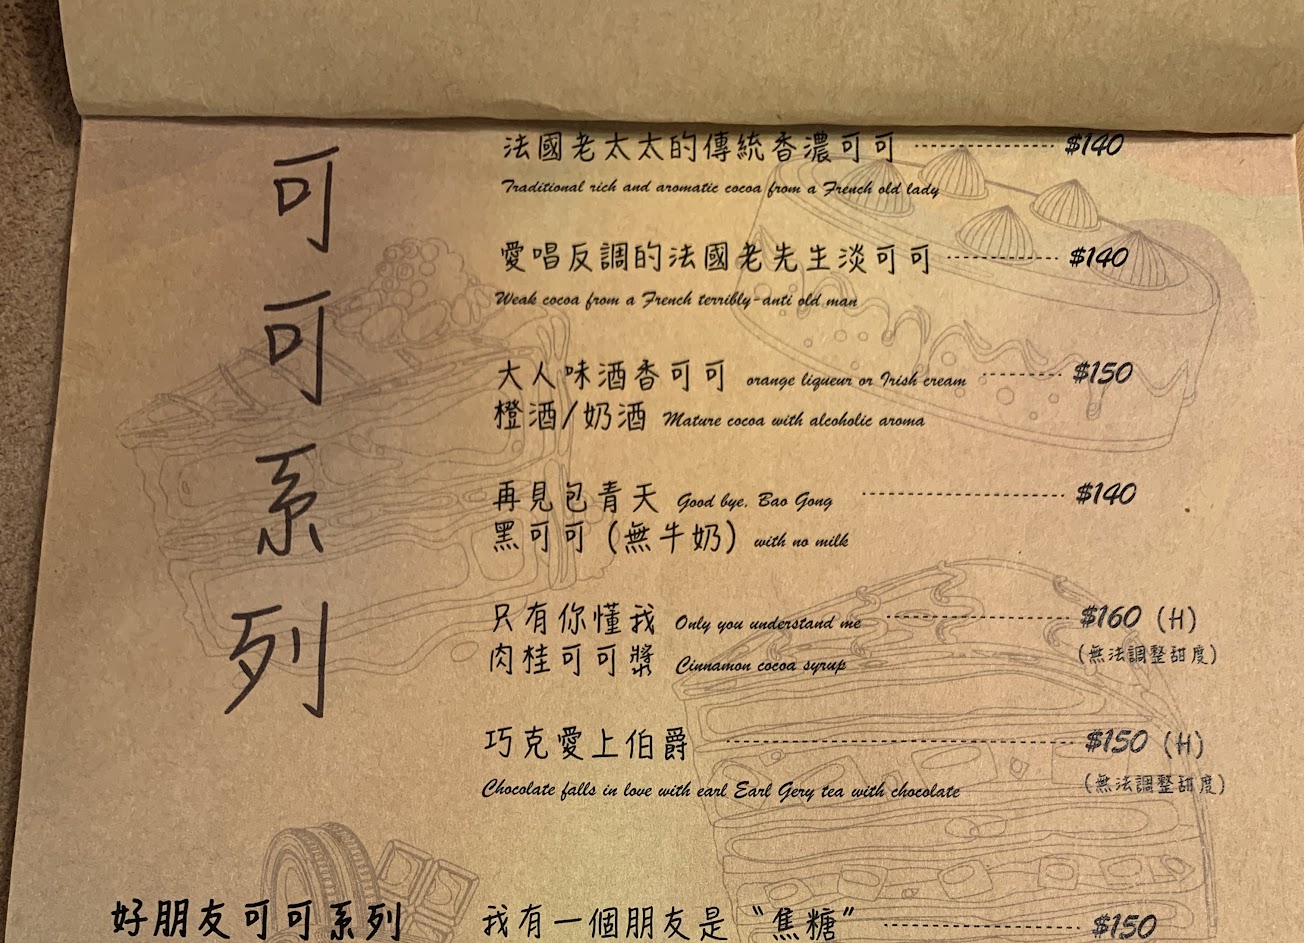 可可系列
法國老太太的傳統香濃可可 $140
Traditional rich and aromatic cocoa from a French old lady
愛唱反調的法國老先生淡可可 $140
Weak cocoa from a French terribly-anti old man
大人味酒香可可 orange liqueur or Irish cream $150
橙酒/奶酒 Mature cocoa with alcoholic aroma
再見包青天 Good bye, Bao Gong $140
黑可可(無牛奶) with no milk
只有你懂我 Only you understand me $160 (H)
肉桂可可漿 Cinnamon cocoa syrup (無法調整甜度)
巧克愛上伯爵 $150 (H)
Chocolate falls in love with earl Earl Gery tea with chocolate (無法調整甜度)
好朋友可可系列 我有一個朋友是"焦糖" $150